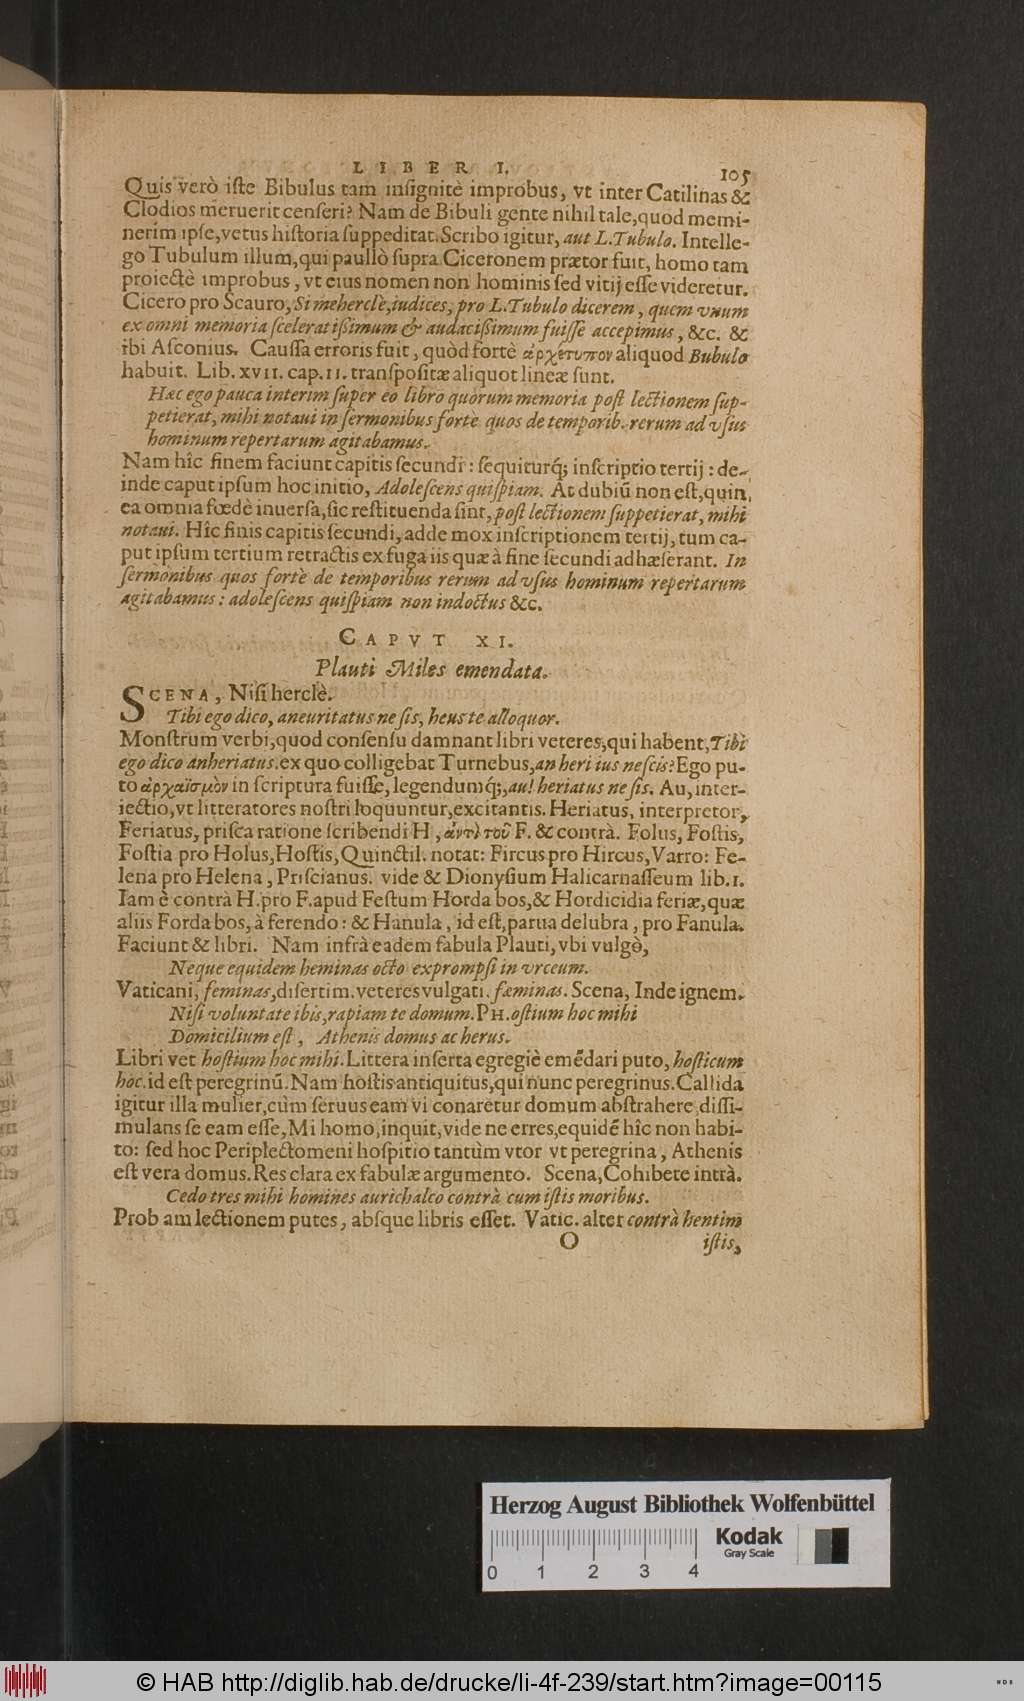 LIBER I. 105
Quis verò iſte Bibulus tam inſignitè improbus, vt inter Catilinas &
Clodios meruerit cenſeri? Nam de Bibuli gente nihil tale, quod memi-
nerim ipſe, vetus hiſtoria ſuppeditat. Scribo igitur, aut L. Tubulo. Intelle-
go Tubulum illum, qui paullò ſupra Ciceronem prætor fuit, homo tam
proiectè improbus, vt eius nomen non hominis ſed vitij eſſe videretur.
Cicero pro Scauro, Si meherclè, iudices, pro L. Tubulo dicerem, quem vnum
ex omni memoria ſceleratiſſimum & audaciſſimum fuiſſe accepimus, &c. &
ibi Aſconius. Cauſſa erroris fuit, quòd fortè ἀρχέτυπον aliquod Bubulo
habuit. Lib. XVII. cap. II. tranſpoſitæ aliquot lineæ ſunt.
Hæc ego pauca interim ſuper eo libro quorum memoria poſt lectionem ſup-
petierat, mihi notaui in ſermonibus forte quos de temporib. rerum ad vſus
hominum repertarum agitabamus.
Nam hîc finem faciunt capitis ſecundi: ſequiturq́; inſcriptio tertij: de-
inde caput ipſum hoc initio, Adoleſcens quiſpiam. At dubiũ non eſt, quin
ea omnia fœdè inuerſa, ſic reſtituenda ſint, poſt lectionem ſuppetierat, mihi
notaui. Hîc finis capitis ſecundi, adde mox inſcriptionem tertij, tum ca-
put ipſum tertium retractis ex fuga iis quæ à fine ſecundi adhæſerant. In
ſermonibus quos fortè de temporibus rerum ad vſus hominum repertarum
agitabamus: adoleſcens quiſpiam non indoctus &c.
CAPVT XI.
Plauti Miles emendata.
SCENA, Niſi herclè.
Tibi ego dico, aneuritatus ne ſis, heus te alloquor.
Monſtrum verbi, quod conſenſu damnant libri veteres, qui habent, Tibi
ego dico anheriatus. ex quo colligebat Turnebus, an heri ius neſcis? Ego pu-
to ἀρχαϊσμὸν in ſcriptura fuiſſe, legendumq́;, au! heriatus ne ſis. Au, inter-
iectio, vt litteratores noſtri loquuntur, excitantis. Heriatus, interpretor,
Feriatus, priſca ratione ſcribendi H, ἀντὶ τοῦ F. & contrà. Folus, Foſtis,
Foſtia pro Holus, Hoſtis, Quinctil. notat: Fircus pro Hircus, Varro: Fe-
lena pro Helena, Priſcianus. vide & Dionyſium Halicarnaſſeum lib. I.
Iam è contrà H. pro F. apud Feſtum Horda bos, & Hordicidia feriæ, quæ
aliis Forda bos, à ferendo: & Hanula, id eſt, parua delubra, pro Fanula.
Faciunt & libri. Nam infrà eadem fabula Plauti, vbi vulgò,
Neque equidem heminas octo exprompſi in vrceum.
Vaticani, feminas, diſertim. veteres vulgati. fœminas. Scena, Inde ignem.
Niſi voluntate ibis, rapiam te domum. PH. oſtium hoc mihi
Domicilium eſt, Athenis domus ac herus.
Libri vet hoſtium hoc mihi. Littera inſerta egregiè emẽdari puto, hoſticum
hoc. id eſt peregrinũ. Nam hoſtis antiquitus, qui nunc peregrinus. Callida
igitur illa mulier, cùm ſeruus eam vi conaretur domum abſtrahere, diſſi-
mulans ſe eam eſſe, Mi homo, inquit, vide ne erres, equidẽ hîc non habi-
to: ſed hoc Periplectomeni hoſpitio tantùm vtor vt peregrina, Athenis
eſt vera domus. Res clara ex fabulæ argumento. Scena, Cohibete intrà.
Cedo tres mihi homines aurichalco contrà cum iſtis moribus.
Prob am lectionem putes, abſque libris eſſet. Vatic. alter contrà hentim
O iſtis,
Herzog August Bibliothek Wolfenbüttel
Kodak
Gray Scale
0 1 2 3 4
© HAB http://diglib.hab.de/drucke/li-4f-239/start.htm?image=00115